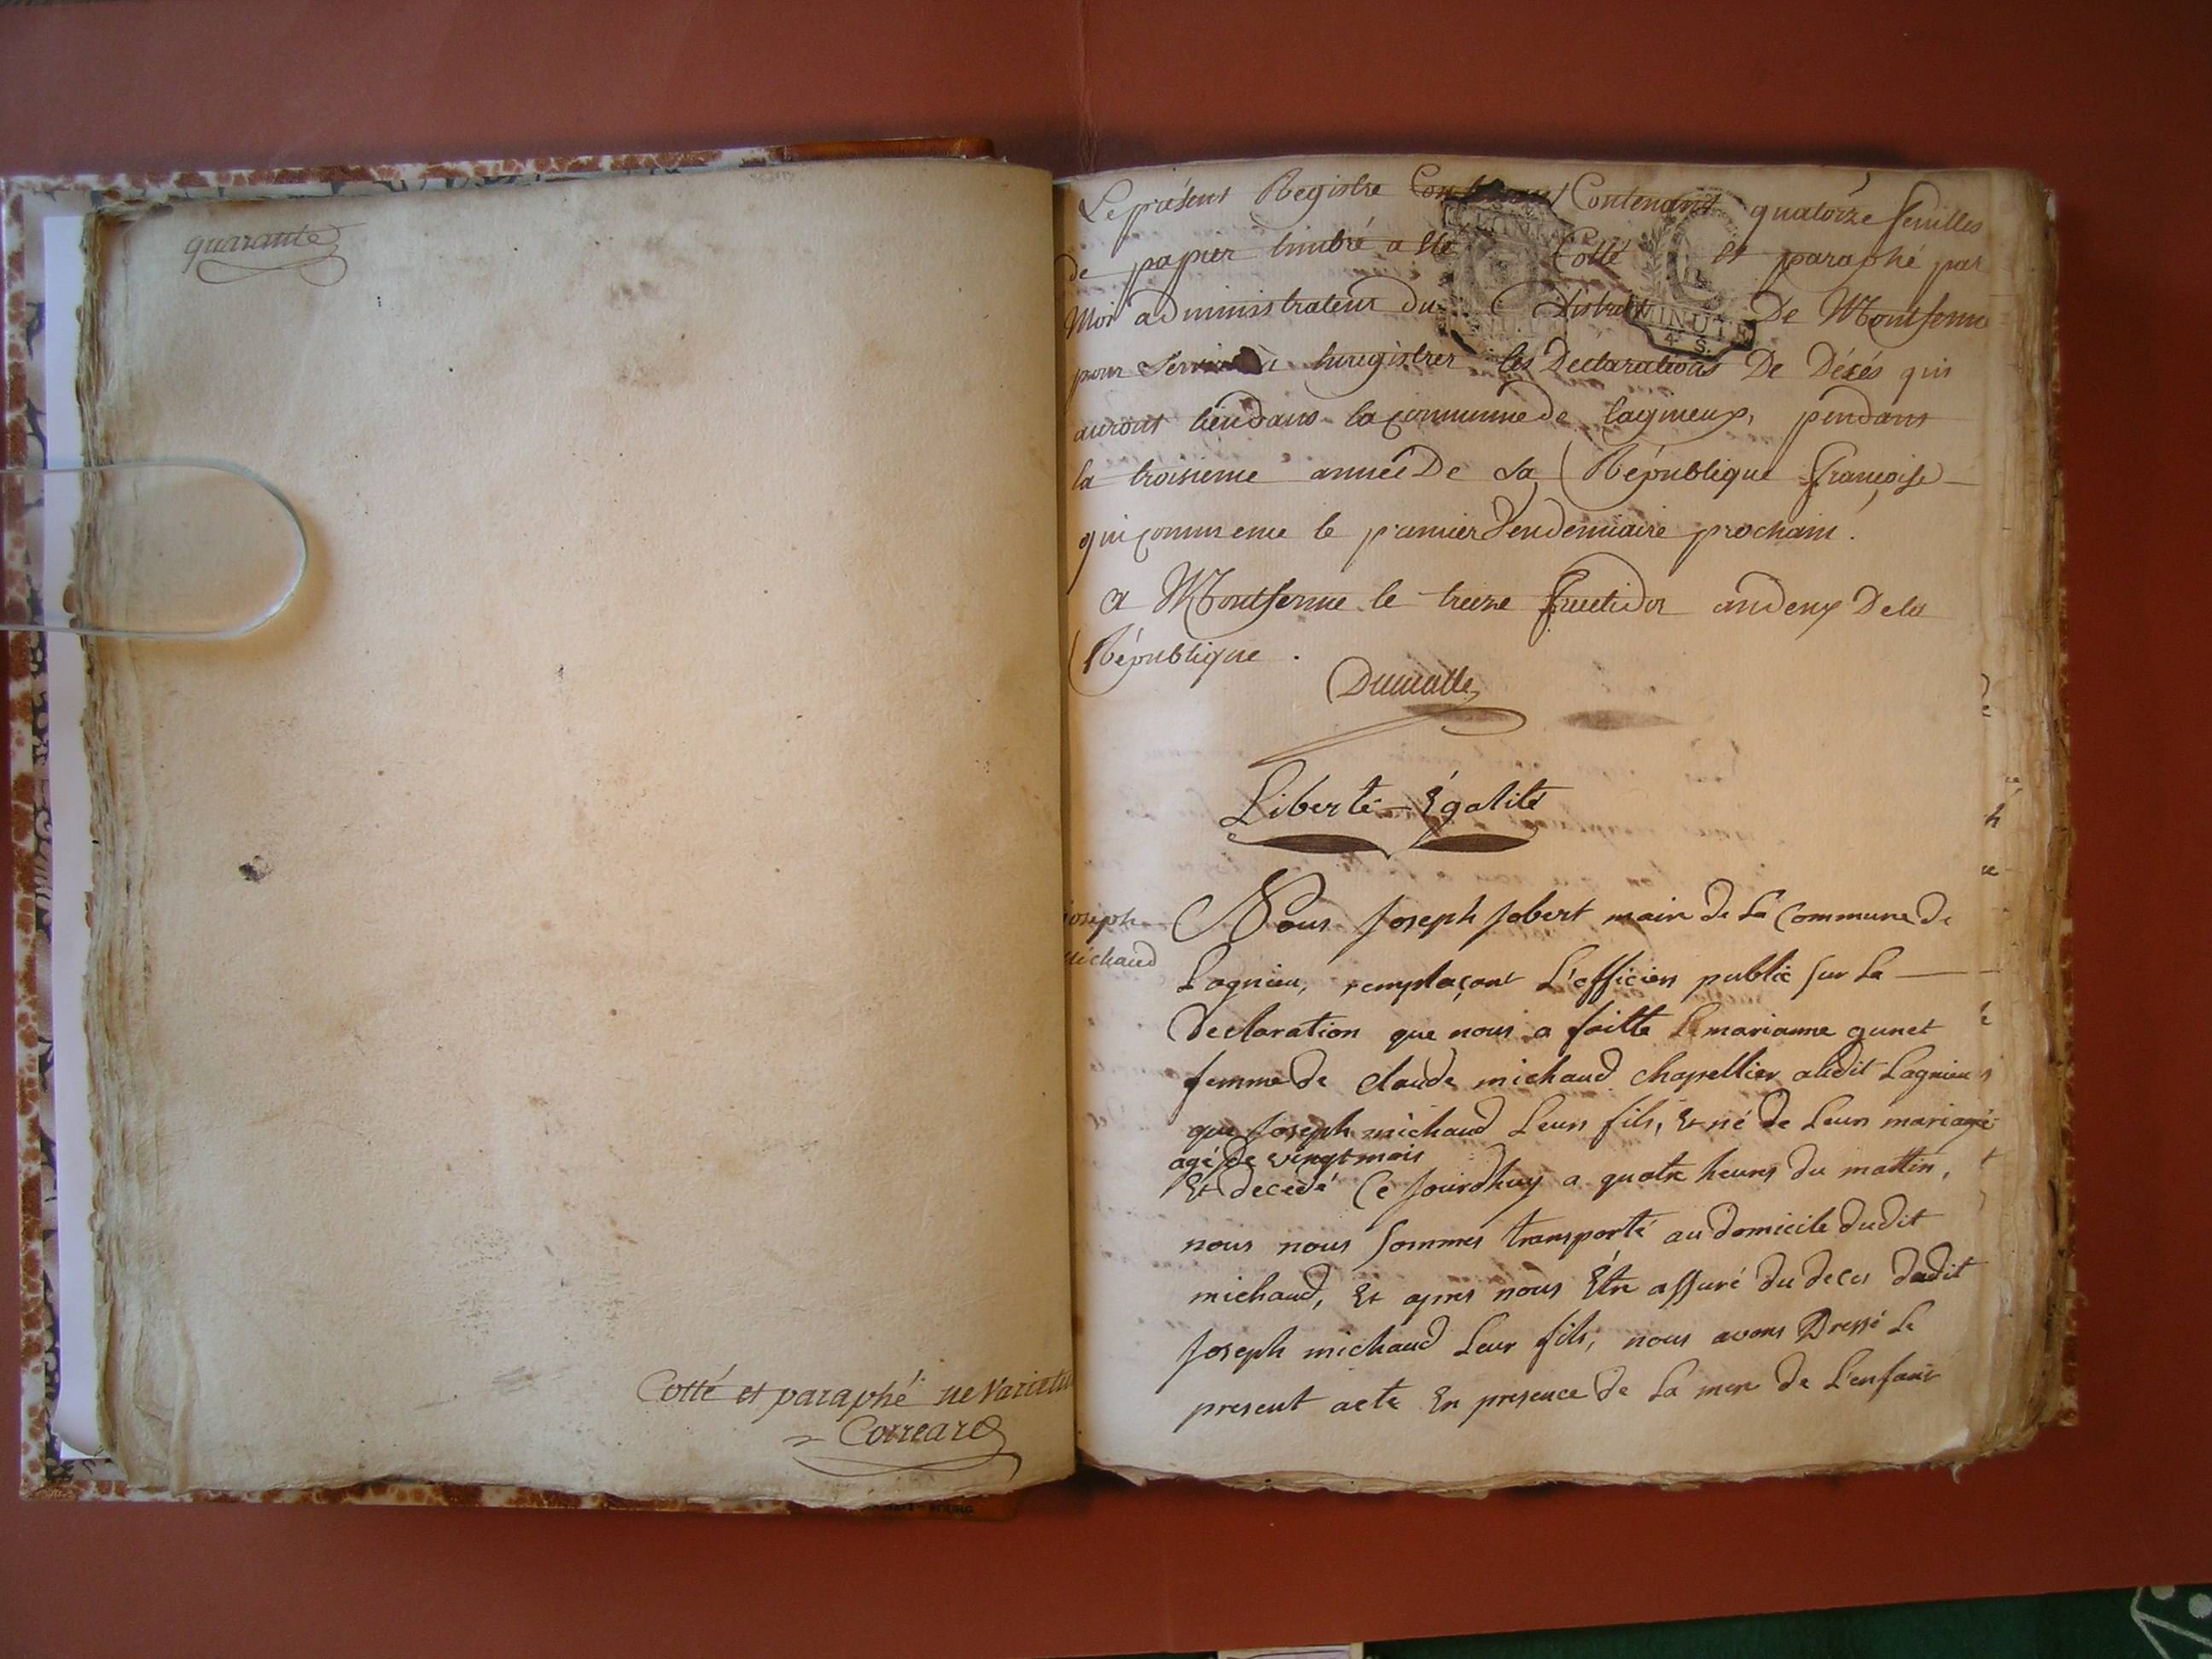 quarante
Cotté et paraphé ne Varietur
Correard
Le présent Registre Contenant quatorze feuilles
de papier timbré a Eté Cotté et paraphé par
Moi administrateur du District De Montferme
pour servir à Enregistrer les Déclarations De Décés qui
auront lieu dans la commune de lagnieux, pendant
la troisieme année De La République françoise
qui commence le premier Vendemiaire prochain.
A Montferme le treize fructidor an deux De la
République.
Liberté - Égalité
Joseph
Michaud
Nous Joseph Jobert maire de La Commune de
Lagnieu, remplaçant L'officier public sur La
Declaration que nous a faitte La marianne gunet
femme de claude michaud chapellier audit Lagnieu
que Joseph michaud Leur fils, Et né de Leur mariage
agé de vingt mois
Et decedé Ce jourdhuy a quatre heures du mattin,
nous nous Sommes transporté au domicile dudit
michaud, Et apres nous Etre assuré du deces dudit
Joseph michaud Leur fils, nous avons Dressé Le
present acte En presence de La mere de L'enfant